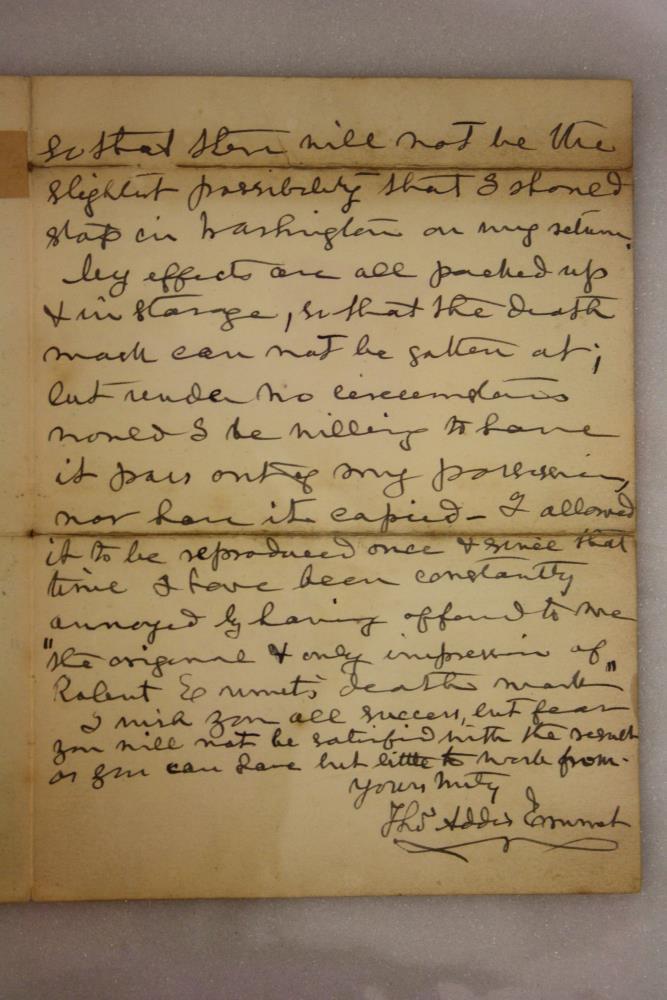 so that there will not be the
slightest possibility that I should
stop in Washington on my return.
My effects are all packed up
& in storage, so that the death
mask can not be gotten at;
but under no circumstances
would I be willing to have
it pass out of my possession,
nor have it copied - I allowed
it to be reproduced once & since that
time I have been constantly
annoyed by having offered to me
"the original & only impression of
Robert Emmet's death mask"
I wish you all success, but fear
you will not be satisfied with the result
as you can have but little to work from.
Yours truly
Thos Addis Emmet